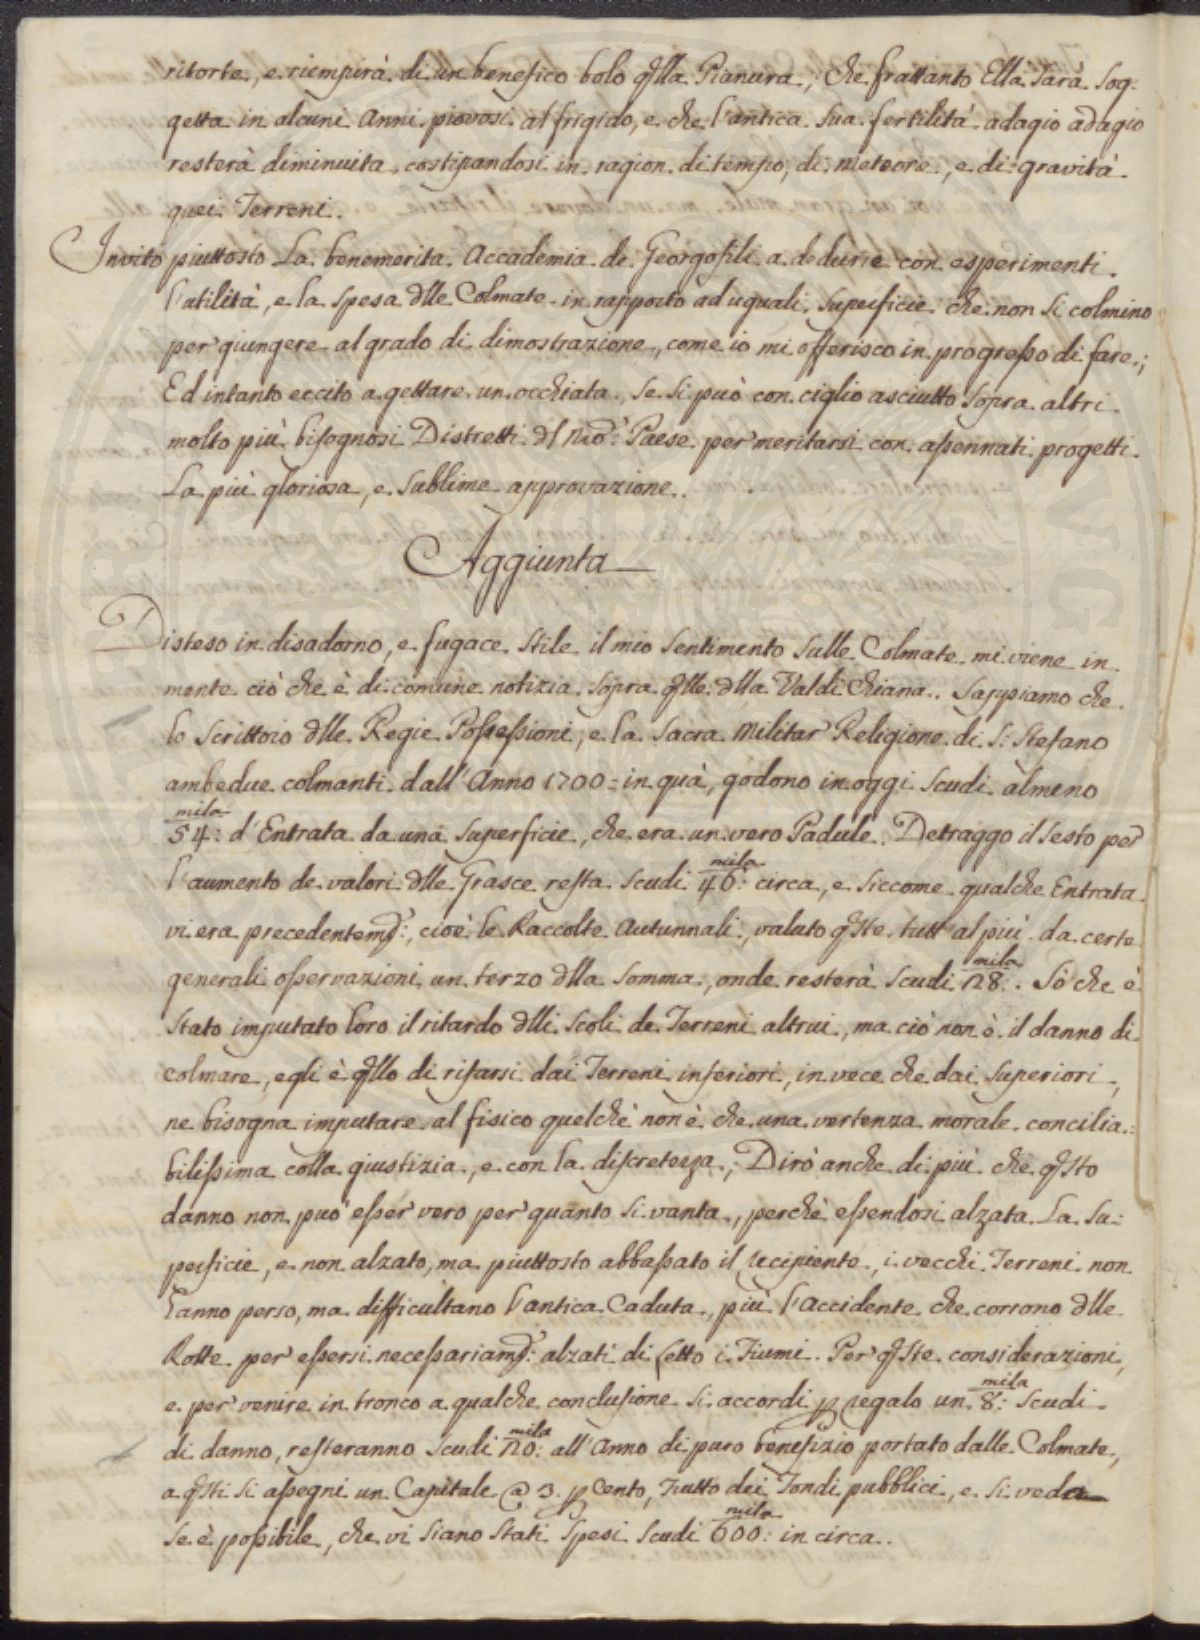 ritorte, e riempirà di un benefico bolo qlla Pianura, che frattanto Ella sarà sog-
getta in alcuni Anni piovosi al frigido, e che l'antica sua fertilità adagio adagio
resterà diminuita, costipandosi in ragion di tempo, di meteore, e di gravità
quei Terreni.
Invito piuttosto La benemerita Accademia de Georgofili a dedurre con esperimenti
l'utilità, e la spesa dlle Colmate in rapporto ad uguali superficie che non si colmino
per giungere al grado di dimostrazione, come io mi offerisco in progresso di fare;
Ed intanto eccito a gettare un occhiata, se si può con ciglio asciutto sopra altri
molto più bisognosi Distretti dl nro: Paese per meritarsi con assennati progetti
La più gloriosa, e sublime approvazione.
Aggiunta
Disteso in disadorno, e fugace stile il mio sentimento sulle Colmate mi viene in
mente ciò che è di comune notizia sopra qlle dlla Valdichiana. Sappiamo che
lo Scrittoio dlle Regie Possessioni, e la Sacra Militar Religione di S: Stefano
ambedue colmanti dall'Anno 1700 = in quà, godono in oggi scudi almeno
54:mila d'Entrata da una superficie, che era un vero Padule. Detraggo il sesto per
l'aumento de valori dlle Grasce resta scudi 46:mila circa, e siccome qualche Entrata
vi era precedentemte:, cioè le Raccolte Autunnali, valuto qste tutt'al più da certe
generali osservazioni un terzo dlla somma, onde resterà scudi 28:mila. Sò che è
stato imputato loro il ritardo dlli scoli de Terreni altrui, ma ciò non è il danno di
colmare, egli è qllo di rifarsi dai Terreni inferiori, in vece che dai superiori,
ne bisogna imputare al fisico quelchè non è che una vertenza morale concilia=
bilissima colla giustizia, e con la discretezza; Dirò anche di più che qsto
danno non può esser vero per quanto si vanta, perchè essendosi alzata La su=
perficie, e non alzato, ma piuttosto abbassato il recipiente, i vecchi Terreni non
l'anno perso, ma difficultano l'antica Caduta, più l'Accidente che corrono dlle
Rotte per essersi necessariamte: alzati di letto i Fiumi. Per qste considerazioni,
e per venire in tronco a qualche conclusione si accordi p regalo un 8:mila scudi
di danno, resteranno scudi 20:mila all'Anno di puro benefizio portato dalle Colmate,
a qsti si assegni un Capitale @ 3. p Cento, Frutto dei Fondi pubblici, e si veda
se è possibile, che vi siano stati spesi scudi 600:mila in circa.